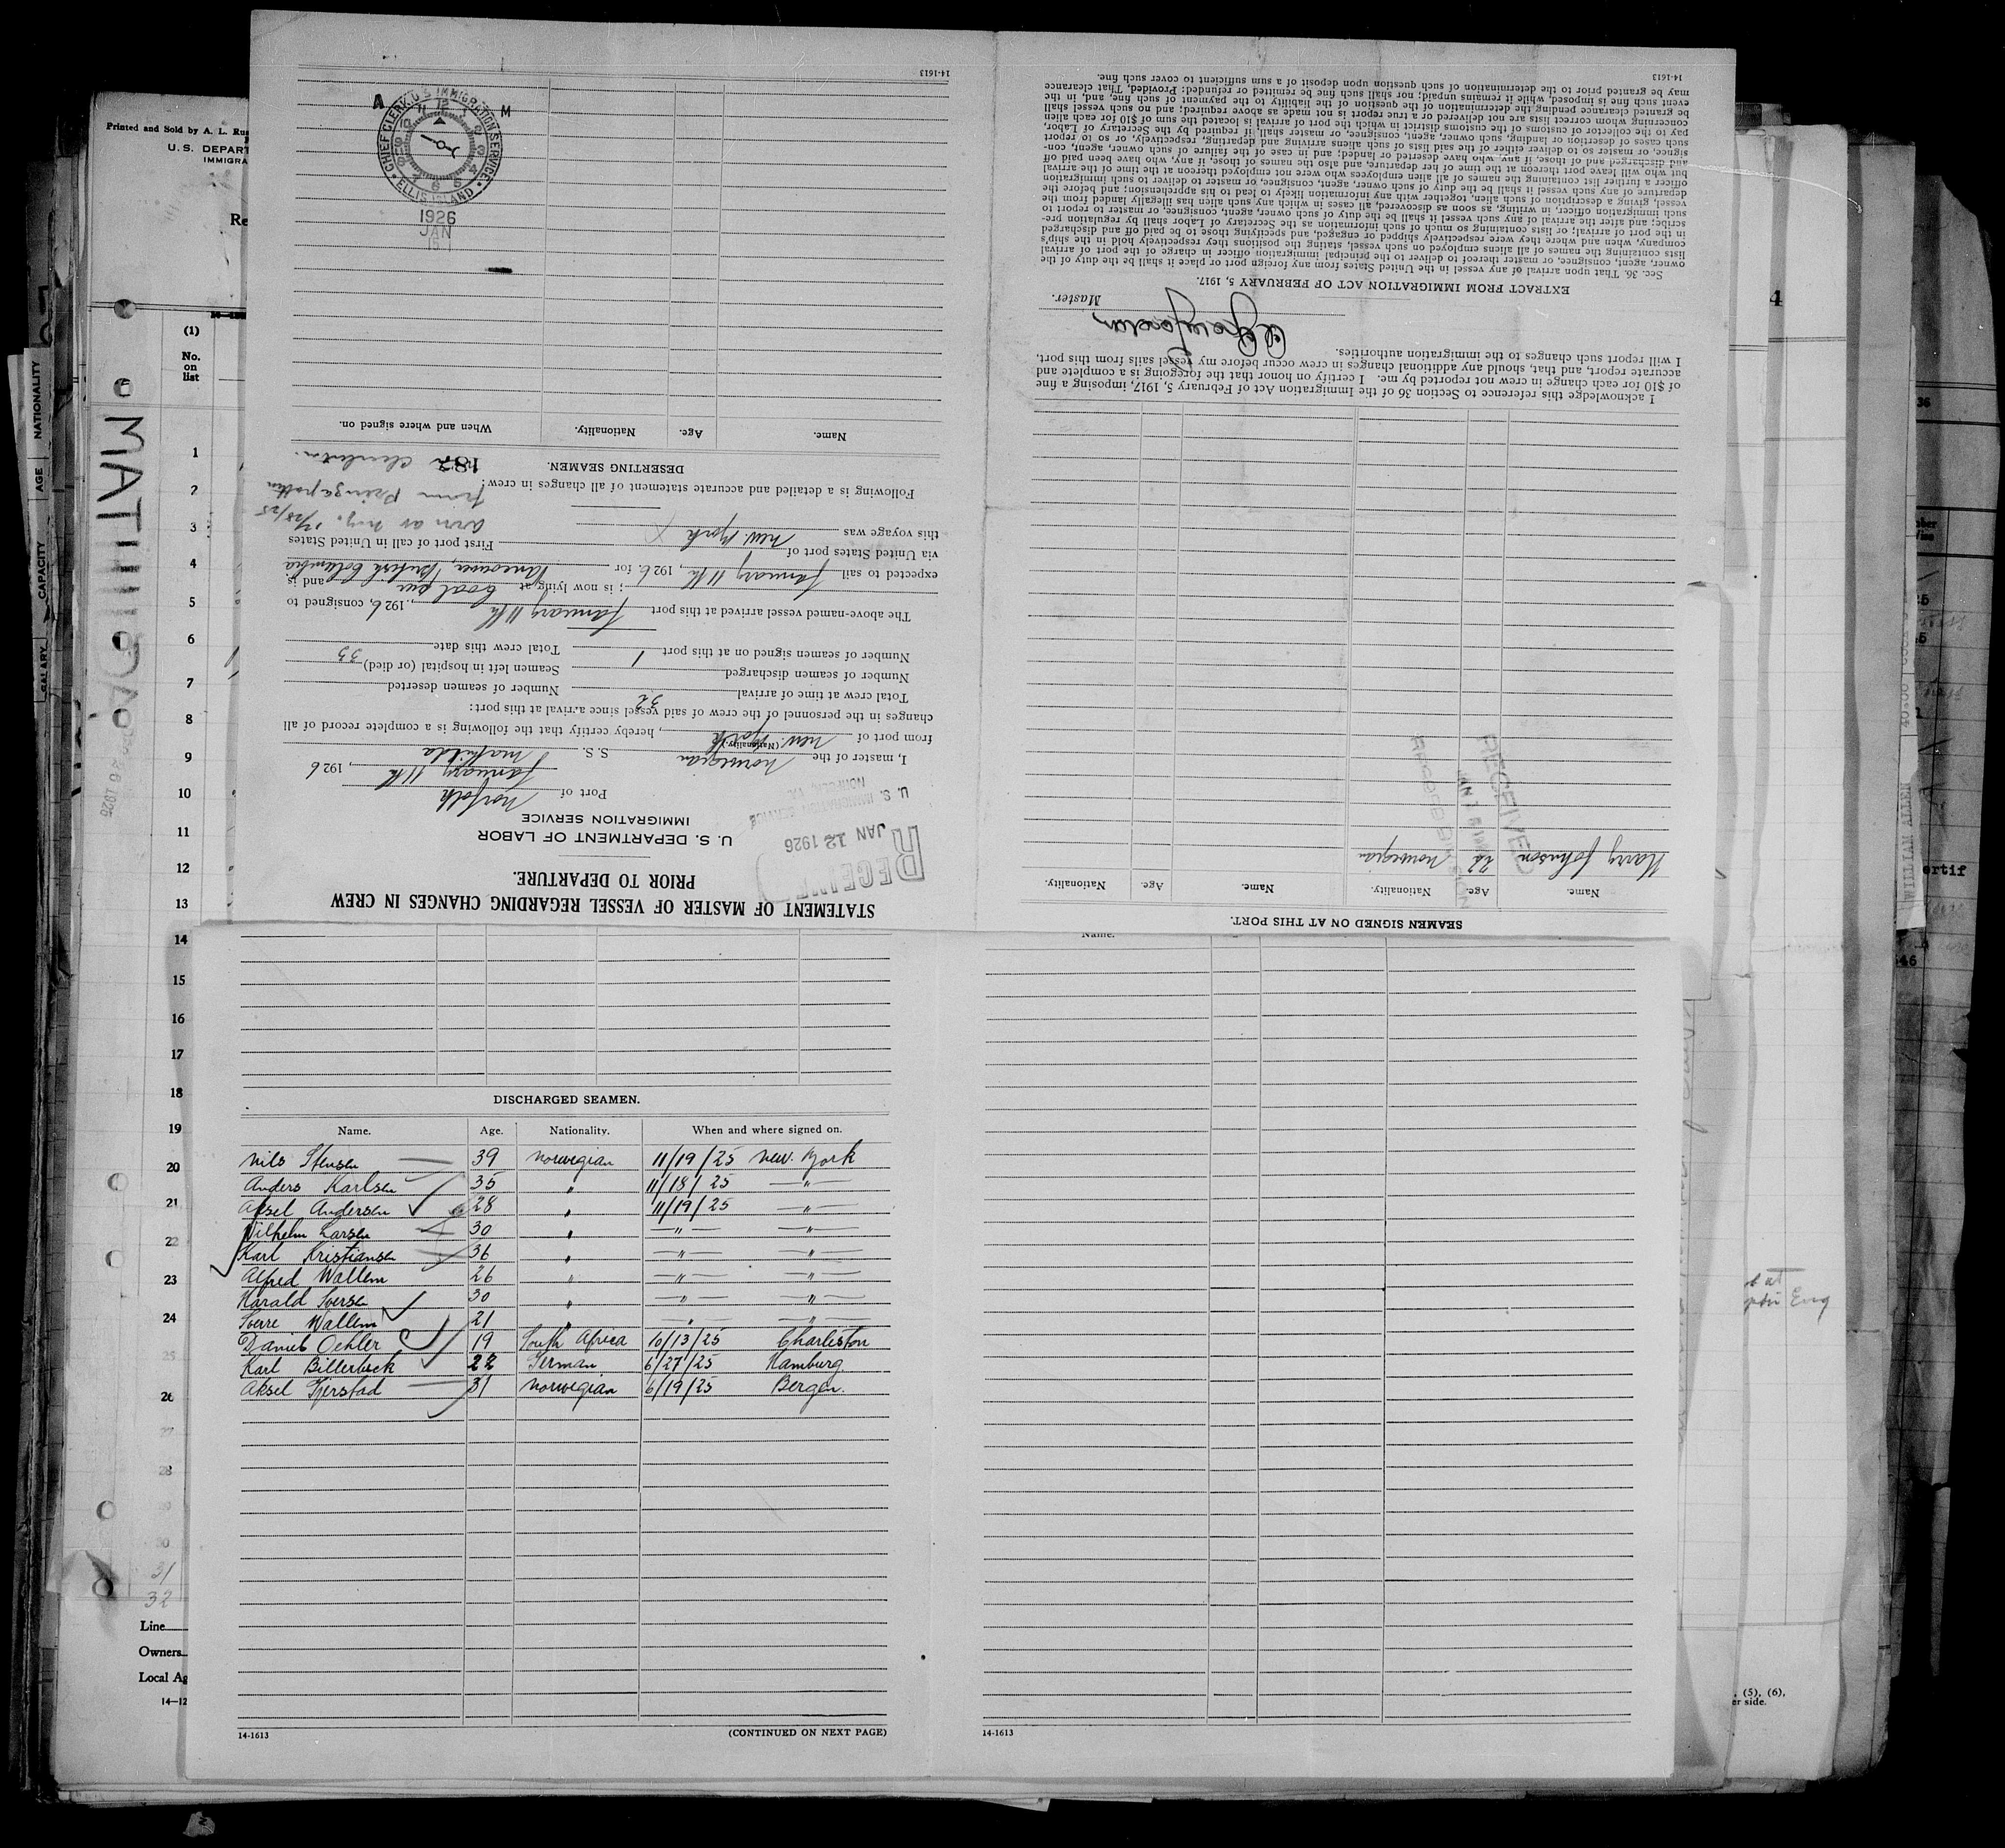 STATEMENT OF MASTER OF VESSEL REGARDING CHANGES IN CREW
PRIOR TO DEPARTURE.
U. S. DEPARTMENT OF LABOR
IMMIGRATION SERVICE
RECEIVED
JAN 12 1926
U. S. IMMIGRATION SERVICE
NORFOLK, VA.
Port of Norfolk
January 11th, 1926
I, master of the Norwegian S. S. Mathilda
(Nationality)
from port of New York, hereby certify that the following is a complete record of all
changes in the personnel of the crew of said vessel since arrival at this port:
Total crew at time of arrival 32 Number of seamen deserted
Number of seamen discharged Seamen left in hospital (or died)
Number of seamen signed on at this port 1 Total crew this date 33
The above-named vessel arrived at this port January 11th, 1926, consigned to
; is now lying at Coal pier and is
expected to sail January 11th, 1926, for Vancouver, British Columbia
via United States port of
First port of call in United States
this voyage was New York
arr at N.Y. 12/28/25
from
Charleston.
Following is a detailed and accurate statement of all changes in crew:
DESERTING SEAMEN.
187
Name. Age. Nationality. When and where signed on.
CHIEF CLERK U S IMMIGRATION SERVICE
ELLIS ISLAND
A M
1926
JAN
15
14-1613
SEAMEN SIGNED ON AT THIS PORT.
Name. Age. Nationality. Name. Age. Nationality.
Harry Johnson 22 Norwegian
RECEIVED
I acknowledge this reference to Section 36 of the Immigration Act of February 5, 1917, imposing a fine
of $10 for each change in crew not reported by me. I certify on honor that the foregoing is a complete and
accurate report, and that, should any additional changes in crew occur before my vessel sails from this port,
I will report such changes to the immigration authorities.
Master.
EXTRACT FROM IMMIGRATION ACT OF FEBRUARY 5, 1917.
Sec. 36. That upon arrival of any vessel in the United States from any foreign port or place it shall be the duty of the
owner, agent, consignee, or master thereof to deliver to the principal immigration officer in charge of the port of arrival
lists containing the names of all aliens employed on such vessel, stating the positions they respectively hold in the ship's
company, when and where they were respectively shipped or engaged, and specifying those to be paid off and discharged
in the port of arrival; or lists containing so much of such information as the Secretary of Labor shall by regulation pre-
scribe; and after the arrival of any such vessel it shall be the duty of such owner, agent, consignee, or master to report to
such immigration officer, in writing, as soon as discovered, all cases in which any such alien has illegally landed from the
vessel, giving a description of such alien, together with any information likely to lead to his apprehension; and before the
departure of any such vessel it shall be the duty of such owner, agent, consignee, or master to deliver to such immigration
officer a further list containing the names of all alien employees who were not employed thereon at the time of the arrival
but who will leave port thereon at the time of her departure, and also the names of those, if any, who have been paid off
and discharged, and of those, if any, who have deserted or landed; and in case of the failure of such owner, agent, con-
signee, or master so to deliver either of the said lists of such aliens arriving and departing, respectively, or so to report
such cases of desertion or landing, such owner, agent, consignee, or master shall, if required by the Secretary of Labor,
pay to the collector of customs of the customs district in which the port of arrival is located the sum of $10 for each alien
concerning whom correct lists are not delivered or a true report is not made as above required; and no such vessel shall
be granted clearance pending the determination of the question of the liability to the payment of such fine, and, in the
event such fine is imposed, while it remains unpaid; nor shall such fine be remitted or refunded: Provided, That clearance
may be granted prior to the determination of such question upon deposit of a sum sufficient to cover such fine.
14-1613
DISCHARGED SEAMEN.
Name. Age. Nationality. When and where signed on.
Nils Stensen 39 Norwegian 11/19/25 New York
Anders Karlsen 35 " 11/18/25 "
Aksel Andersen 28 " 11/19/25 "
Wilhelm Larsen 30 " " "
Karl Kristiansen 36 " " "
Alfred Wallem 26 " " "
Harald Iversen 30 " " "
Sverre Wallem 21 " " "
Daniel Oehler 19 South Africa 10/13/25 Charleston
Karl Billerbeck 22 German 6/27/25 Hamburg
Aksel Fjerstad 31 Norwegian 6/19/25 Bergen.
14-1613
(CONTINUED ON NEXT PAGE)
Name.
14-1613
Printed and Sold by A. L. Rus
U. S. DEPART
IMMIGRA
Re
(1)
No.
on
list
MATHILDA
1
2
3
4
5
6
7
8
9
10
11
12
13
14
15
16
17
18
19
20
21
22
23
24
25
26
27
28
29
30
31
32
Line
Owners
Local Ag
14—12
NATIONALITY
AGE
CAPACITY
SALARY
4
36
25
45
ertif
646
WILLIAM ALLER
Eng
, (5), (6),
er side.